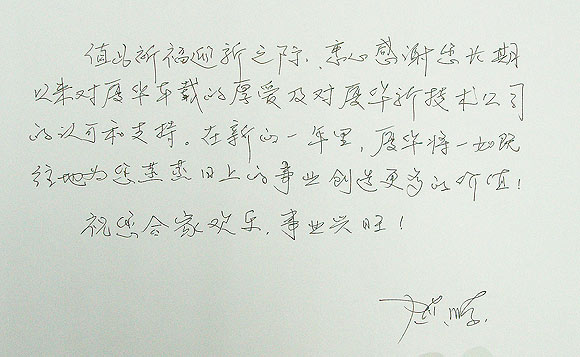 值此祈福迎新之际,衷心感谢您长期
以来对厦华车载的厚爱及对厦华新技术公司
的认可和支持。在新的一年里,厦华将一如既
往地为您蒸蒸日上的事业创造更多的价值!
祝您合家欢乐,事业兴旺!